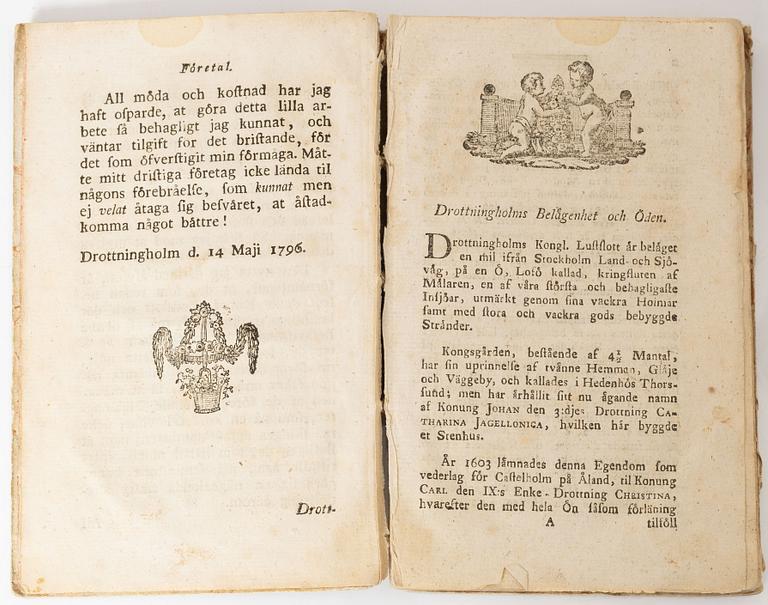 Företal.
All möda och koſtnad har jag
haft oſparde, at göra detta lilla ar-
bete ſå behagligt jag kunnat, och
väntar tilgift for det briſtande, för
det ſom öfverſtigit min förmåga. Måt-
te mitt driſtiga företag icke lända til
någons förebråelſe, ſom kunnat men
ej velat åtaga ſig beſväret, at åſtad-
komma något båttre!
Drottningholm d. 14 Maji 1796.
Drott-
Drottningholms Belågenhet och Öden.
Drottningholms Kongl. Luſtſlott år belåget
en mil ifrån Stockholm Land- och Sjö-
våg, på en Ö, Lofö kallad, kringfluten af
Målaren, en af våra ſtörſta och behagligaſte
Inſjöar, utmärkt genom ſina vackra Holmar
ſamt med ſtora och vackra gods bebyggde
Stränder.
Kongsgården, beſtående af 4½ Mantal,
har ſin uprinnelſe af tvånne Hemman, Glåje
och Väggeby, och kallades i Hedenhós Thors-
ſund; men har århållit ſitt nu ågande namn
af Konung JOHAN den 3:djes Drottning CA-
THARINA JAGELLONICA, hvilken hår byggde
et Stenhus.
År 1603 låmnades denna Egendom ſom
vederlag för Caſtelholm på Åland, til Konung
CARL den IX:s Enke-Drottning CHRISTINA,
hvarefter den med hela Ön ſåſom förläning
A tilföll